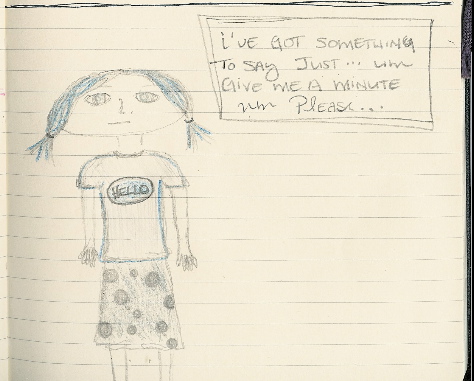 I'VE GOT SOMETHING
TO SAY JUST... UM
GIVE ME A MINUTE
UM PLEASE...
HELLO